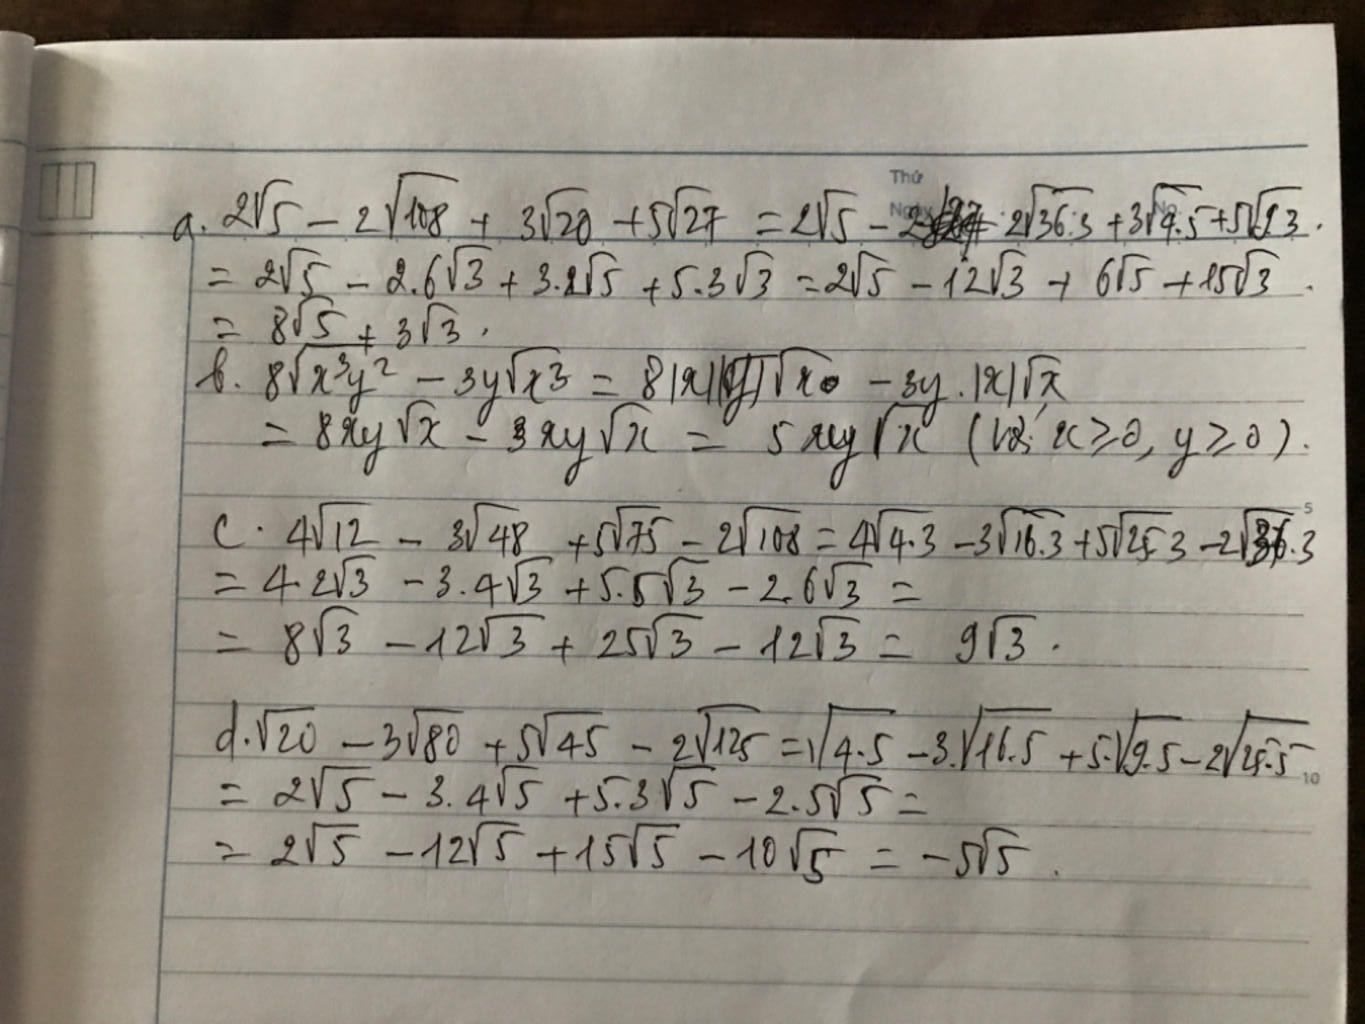 Thứ
Ngày No.
a. 2√5 − 2√108 + 3√20 + 5√27 = 2√5 − 2√36.3 + 3√4.5 + 5√9.3.
= 2√5 − 2.6√3 + 3.2√5 + 5.3√3 = 2√5 − 12√3 + 6√5 + 15√3.
= 8√5 + 3√3.
b. 8√x³y² − 3y√x³ = 8|x||y|√x − 3y.|x|√x
= 8xy√x − 3xy√x = 5xy√x (Vì x ≥ 0, y ≥ 0).
5
c. 4√12 − 3√48 + 5√75 − 2√108 = 4√4.3 − 3√16.3 + 5√25.3 − 2√36.3
= 4.2√3 − 3.4√3 + 5.5√3 − 2.6√3 =
= 8√3 − 12√3 + 25√3 − 12√3 = 9√3.
d. √20 − 3√80 + 5√45 − 2√125 = √4.5 − 3.√16.5 + 5.√9.5 − 2√25.5
10
= 2√5 − 3.4√5 + 5.3√5 − 2.5√5 =
= 2√5 − 12√5 + 15√5 − 10√5 = −5√5.